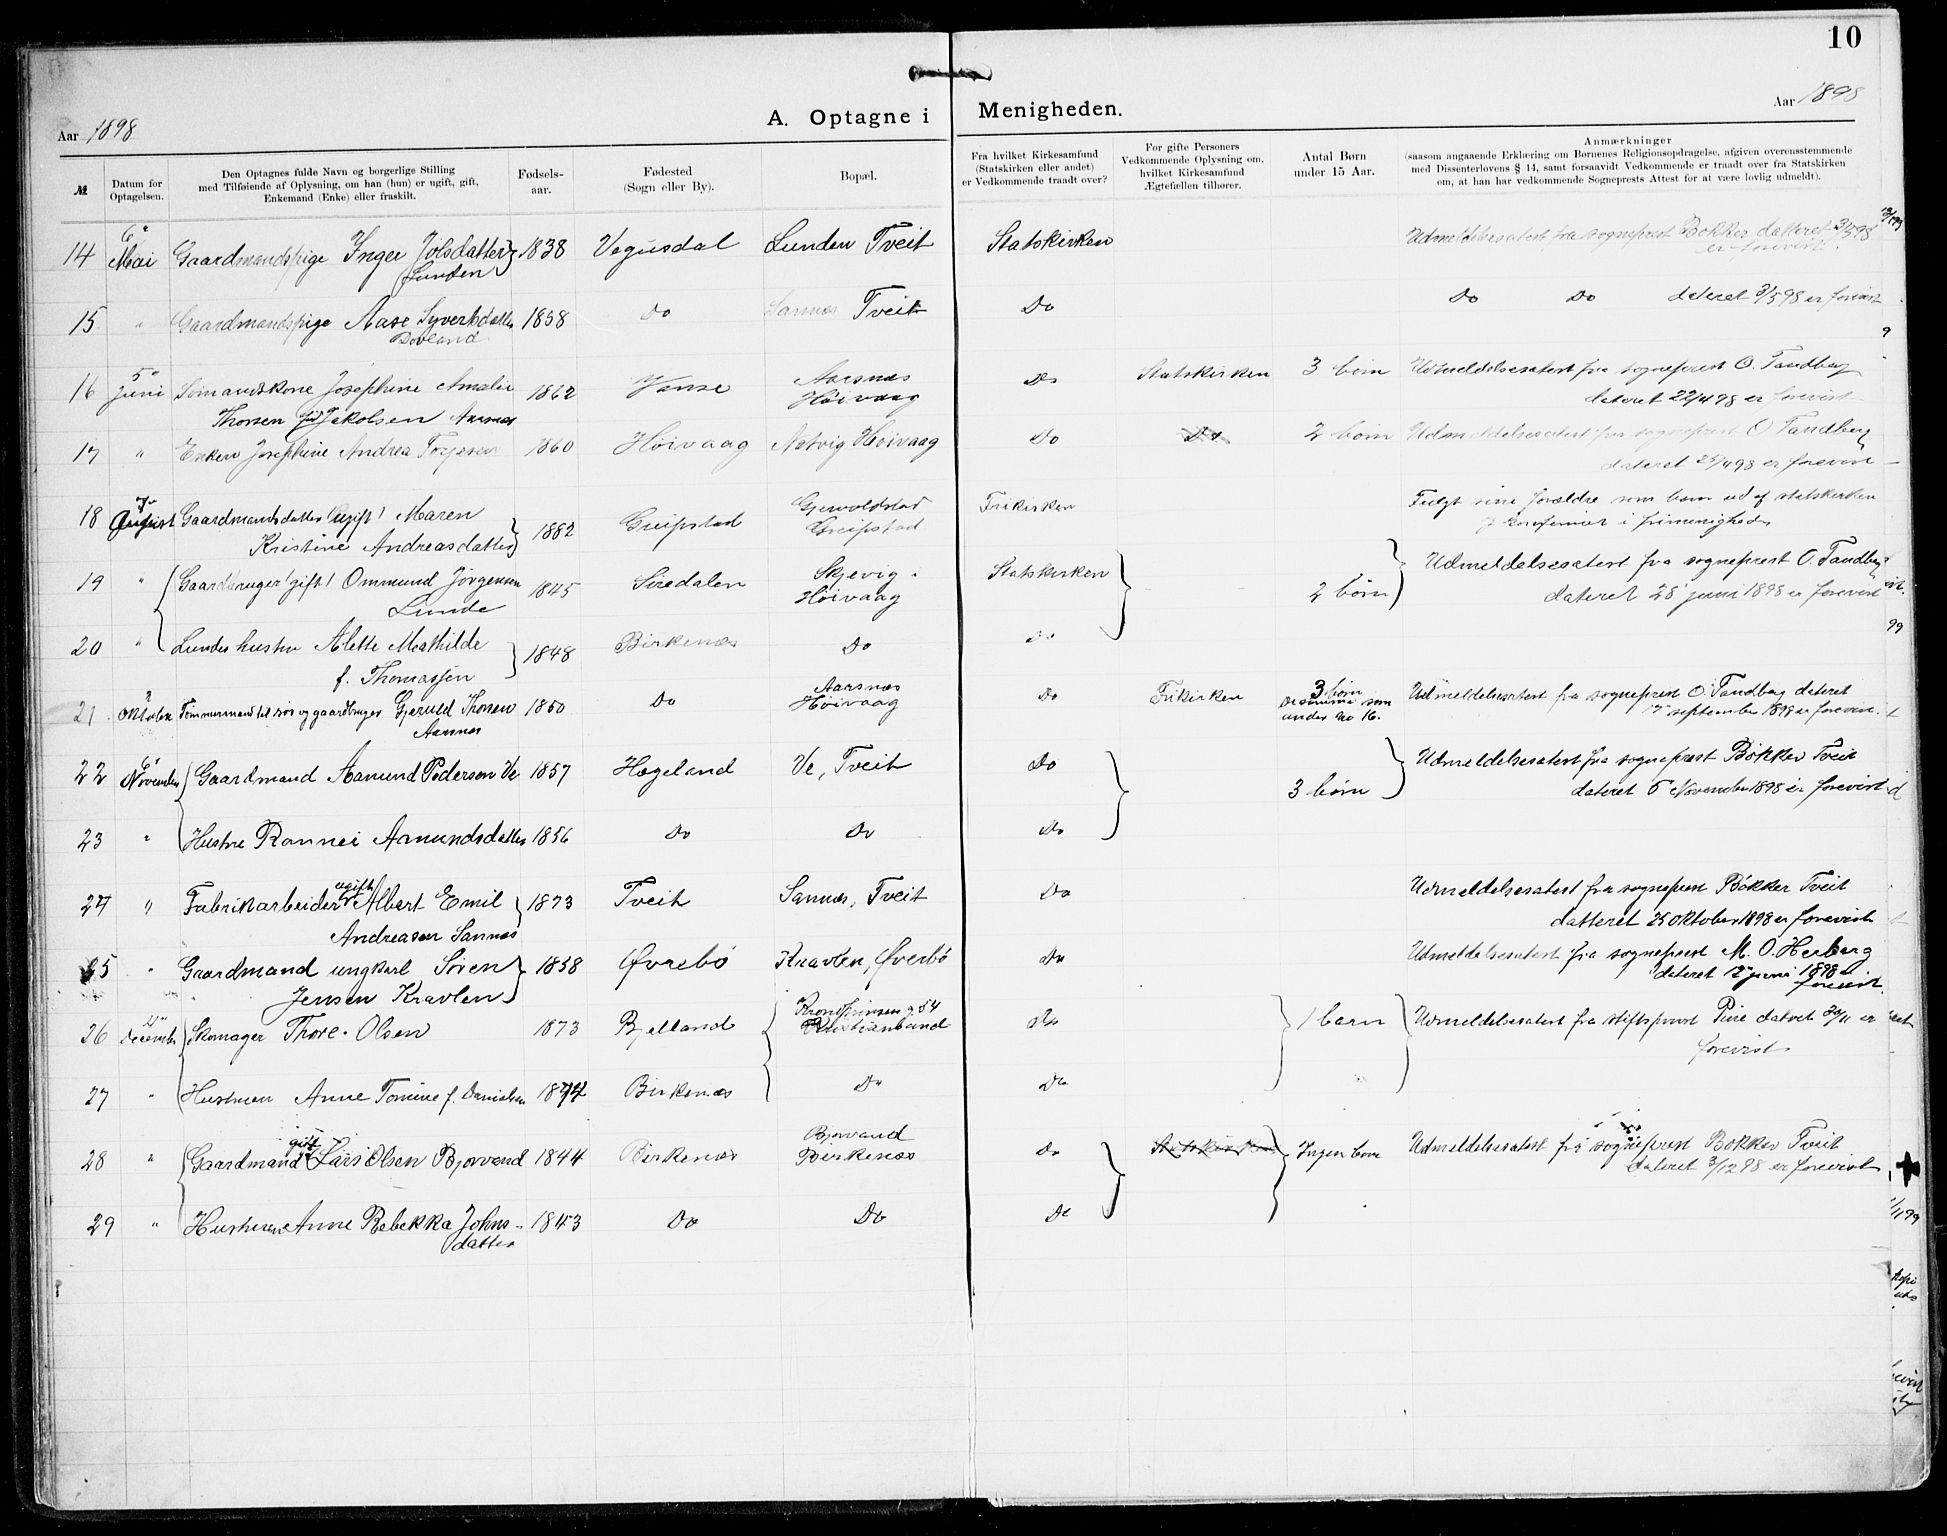 10
Aar 1898
A. Optagne i Menigheden.
Aar 1898
№
Datum for Optagelsen.
Den Optagnes fulde Navn og borgerlige Stilling
med Tilføiende af Oplysning, om han (hun) er ugift, gift,
Enkemand (Enke) eller fraskilt.
Fødsels-
aar.
Fødested
(Sogn eller By).
Bopæl.
Fra hvilket Kirkesamfund
(Statskirken eller andet)
er Vedkommende traadt over?
For gifte Personers
Vedkommende Oplysning om,
hvilket Kirkesamfund
Ægtefællen tilhorer.
Antal Børn
under 15 Aar.
Anmærkninger
(saasom angaaende Erklæring om Børnenes Religionsopdragelse, afgiven overensstemmende
med Dissenterlovens § 14, samt forsaavidt Vedkommende er traadt over fra Statskirken
om, at han har vedkommende Sogneprests Attest for at være lovlig udmeldt).
14 Mai Gaardmandspige Inger Jolsdatter 1838 Vegusdal Lunden Tveit Statskirken Udmeldelsesatest fra sogneprest Bøkker datteret 3/5 98
Lunden er forevist.
15 " Gaardmandspige Aase Syvertsdatter 1858 Do Sannes Tveit Do Do Do dateret 3/5 98 er forevist
Dovland
16 5 Juni Sømandskone Josephine Amalie 1862 Vanse Aarsnæs Høivaag Do Statskirken 3 børn Udmeldelsesatest fra sogneprest O. Tandberg
Thorsen fød Jakobsen Aarsnæs dateret 22/4 98 er forevist
17 " Enken Josephine Andrea Torjesen 1860 Høivaag Natvig Høivaag Do Do 2 børn Udmeldelsesatest fra sogneprest O Tandberg
dateret 25/4 98 er forevist
18 August Gaardmandsdatter (Ugift) Maren 1882 Greipstad Greipstad Frikirken Fulgt sine forældre som barn ud af statskirken
Kristine Andreasdatter i frimenighed
19 " Gaardbruger (gift) Ommund Jørgensen 1845 Siredalen Skjevig Høivaag Statskirken 2 børn Udmeldelsesatest fra sogneprest O. Tandberg
Lunde dateret 28 juni 1898 er forevist
20 " Lundes hustru Alette Mathilde 1848 Birkenæs Do Do
f. Thomassen
21 2 Oktober Tømmermand til søs og gaardbruger Gjeruld Thorsen 1860 Do Aarsnæs Høivaag Do Frikirken 3 børn Udmeldelsesatest fra sogneprest O. Tandberg dateret
Aarsnæs De samme som under no 16. september 1898 er forevist
22 6 November Gaardmand Aamund Pederson Ve 1857 Hægeland Ve, Tveit Do 3 børn Udmeldelsesatest fra sogneprest Bøkker Tveit
dateret 5 November 1898 er forevist
23 " Hustru Rannei Aamundsdatter 1856 Do Do Do
24 " Fabrikarbeider ugift Albert Emil 1873 Tveit Sannes, Tveit Do Udmeldelsesatest fra sogneprest Bøkker Tveit
Andreasen Sannes datteret 25 Oktober 1898 er forevist
25 " Gaardmand ungkarl Søren 1858 Øvrebø Kravlen, Øvrebø Do Udmeldelsesatest fra sogneprest M. O. Herberg
Jensen Kravlen dateret 12 juni 1898 er forevist.
26 December Skomager Thore Olsen 1873 Bjelland Kronprinsen g 54 Kristiansund Do 1 barn Udmeldelsesatest fra stiftsprovst datret 30/11 er
forevist
27 " Hustruen Anne Tomine f. Danielsen 1874 Birkenæs Do Do
28 " Gaardmand gift Lars Olsen Bjorvand 1844 Birkenæs Bjorvand Birkenæs Do Statskirken Ingen børn Udmeldelsesatest fra sogneprest Bøkker Tveit
dateret 3/12 98 er forevist
29 " Hustruen Anne Rebekka Johns- 1843 Do Do Do
datter